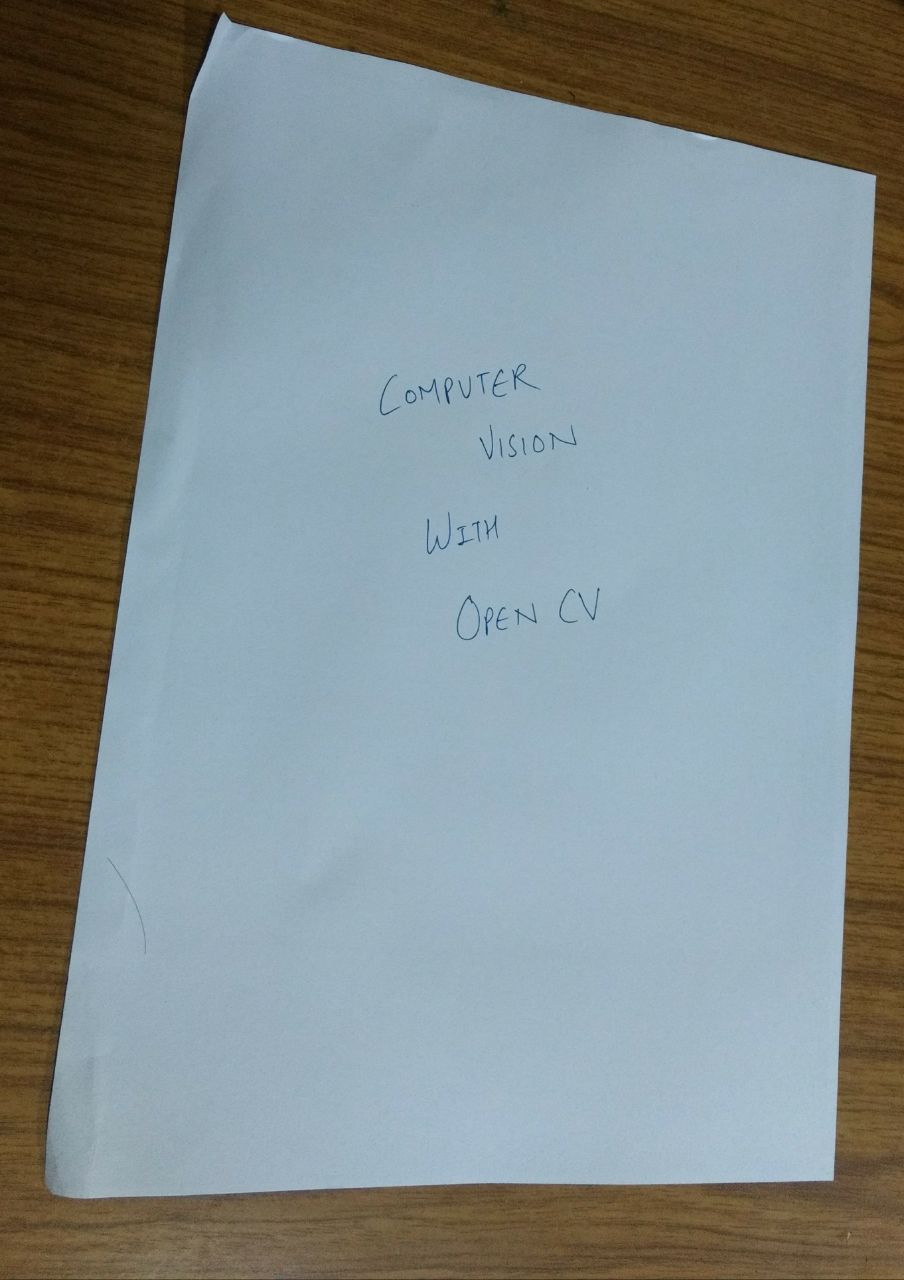 COMPUTER
VISION
WITH
OPEN CV